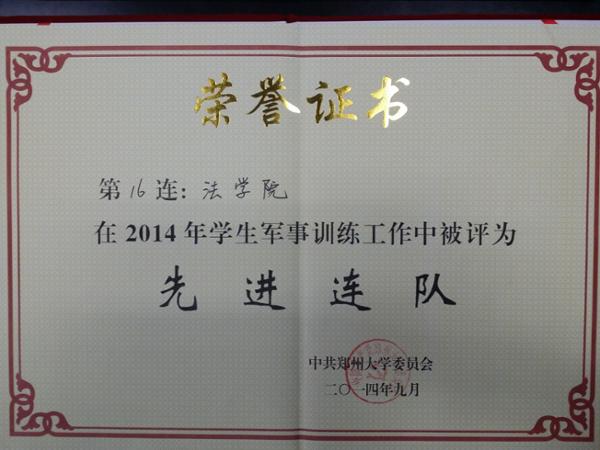 荣誉证书
第16连:法学院
在2014年学生军事训练工作中被评为
先进连队
中共郑州大学委员会
二〇一四年九月